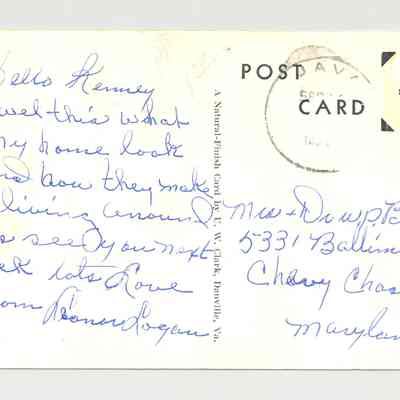 Hello Kenney
wel this what
my home look
and how they make
living around
as seed you next
ek lots Love
from Logan
A Natural-Finish Card by E. W. Clark, Danville, Va.
POST
CARD
DAVI
Mrs + Dr W.P.B
5331 Baltim
Chevy Chas
Marylan